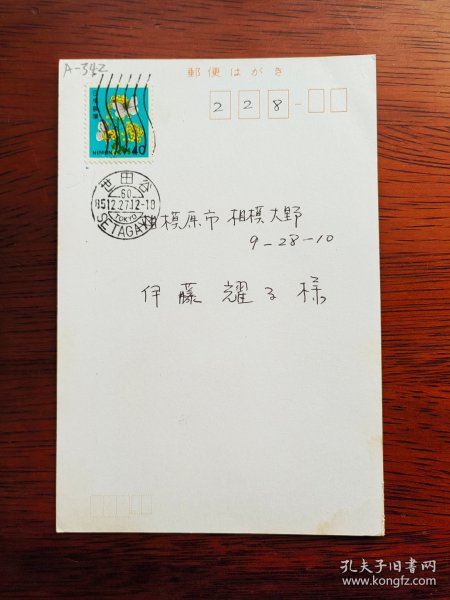 A-342
郵便はがき
228-
日本郵便
NIPPON 40
世田谷
60
85.12.27.12-18
TOKYO
SETAGAYA
相模原市 相模大野
9-28-10
伊藤 耀子 様
孔夫子旧书网
www.kongfz.com